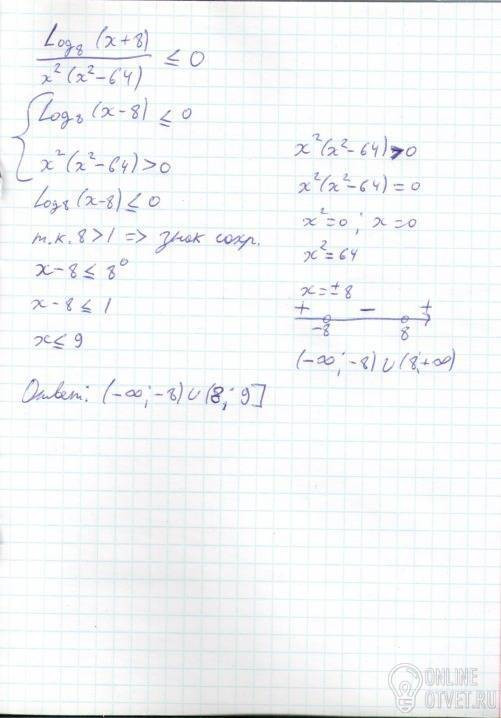 Log₈(x+8) / x²(x²-64) ≤ 0
{ Log₈(x-8) ≤ 0
x²(x²-64) > 0
Log₈(x-8) ≤ 0
т.к. 8 > 1 => знак сохр.
x-8 ≤ 8⁰
x-8 ≤ 1
x ≤ 9
x²(x²-64) > 0
x²(x²-64) = 0
x²=0; x=0
x²=64
x=±8
+ − +
-8 8
(-∞; -8) ∪ (8; +∞)
Ответ: (-∞; -8) ∪ (8; 9]
ONLINE
OTVET.RU